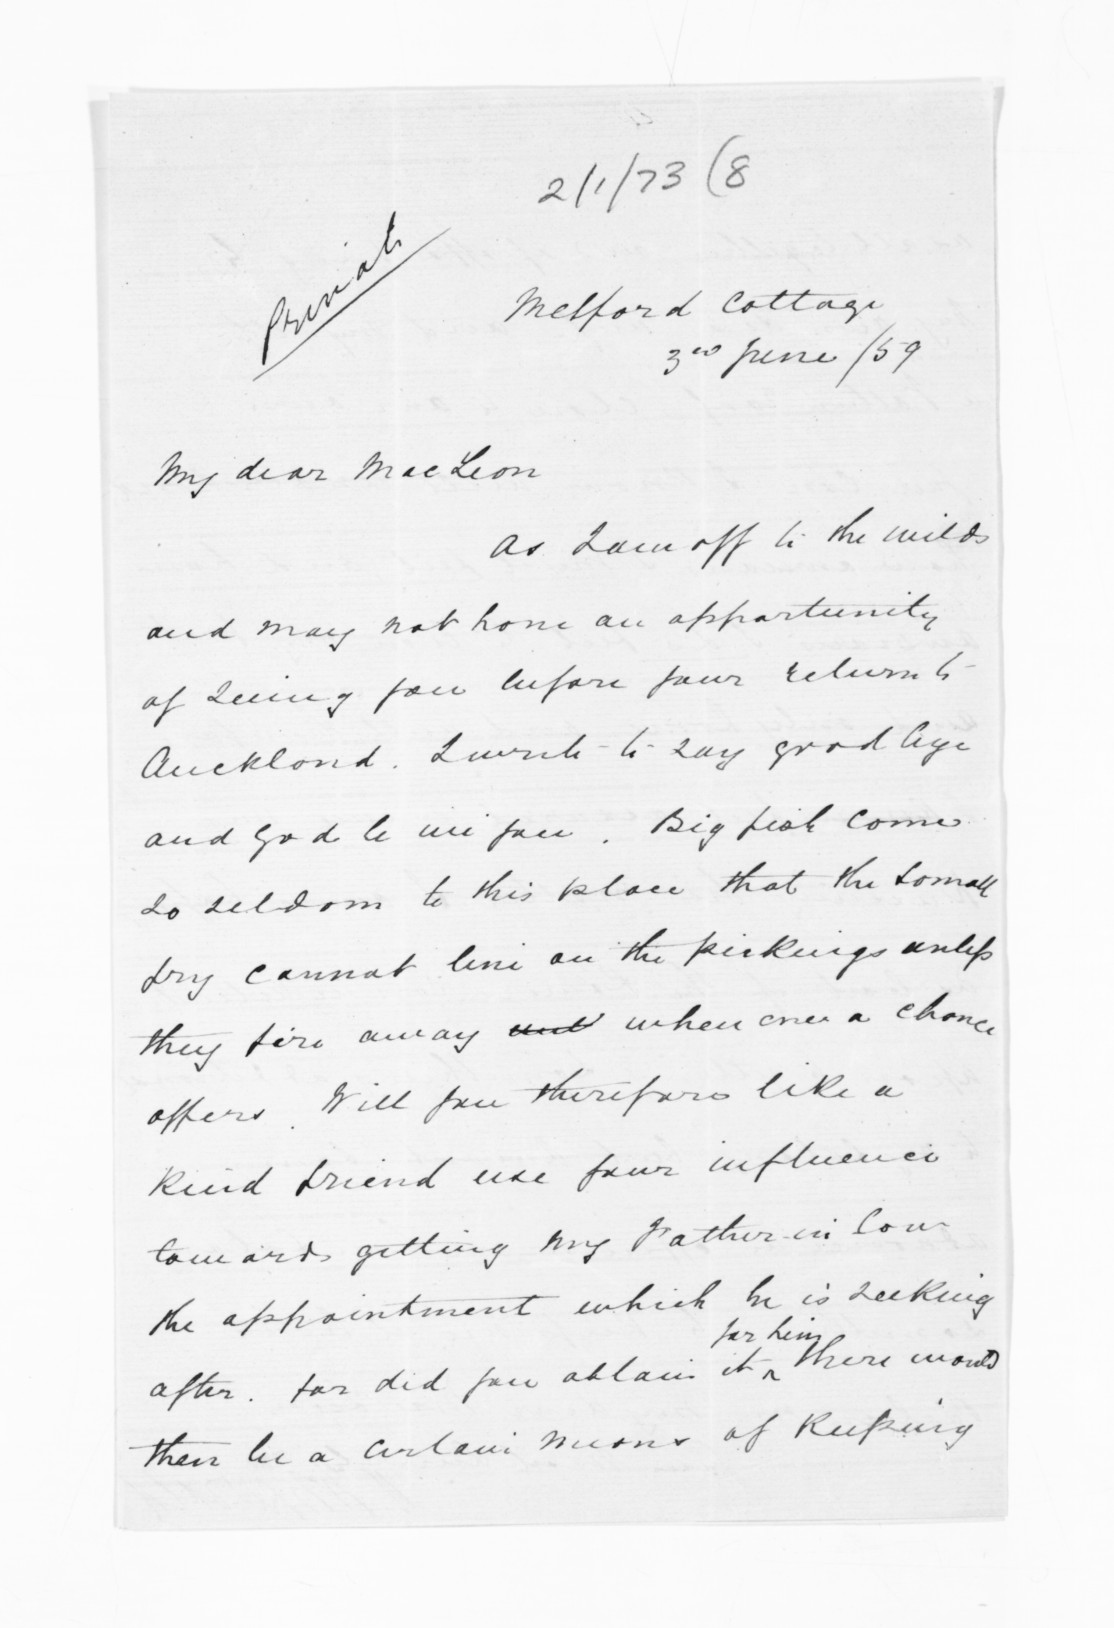 2/1/73 (8
Private
Melford Cottage
3rd June /59
My dear MacLeon
As I am off to the wilds
and may not have an opportunity
of seeing you before your return to
Auckland. I write to say good bye
and God be wi you. Big fish come
so seldom to this place that the small
fry cannot live on the pickings unless
they fire away when ever a chance
offers. Will you therefore like a
kind friend use your influence
towards getting my Father-in Law
the appointment which he is seeking
for him
after. for did you obtain it ^ there would
then be a certain means of keeping